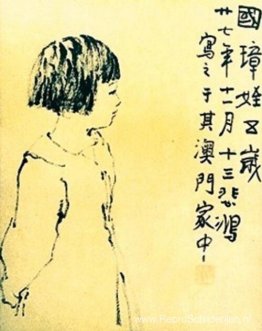 國璋姪五歲
廿七年十一月十三悲鴻
寫之于其澳門家中
www.ReproSchilderijen.nl